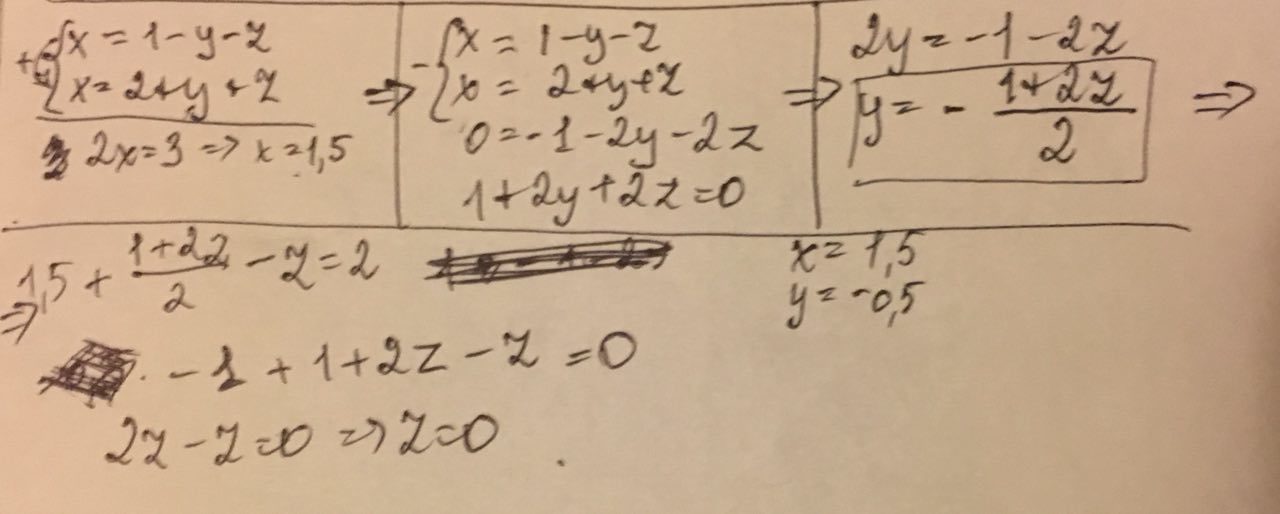 + { x = 1 - y - z
x = 2 + y + z
2x = 3 => x = 1,5
=> - { x = 1 - y - z
x = 2 + y + z
0 = -1 - 2y - 2z
1 + 2y + 2z = 0
=> 2y = -1 - 2z
y = - (1 + 2z)/2 =>
=> 1,5 + (1 + 2z)/2 - z = 2
-1 + 1 + 2z - z = 0
2z - z = 0 => z = 0
x = 1,5
y = -0,5